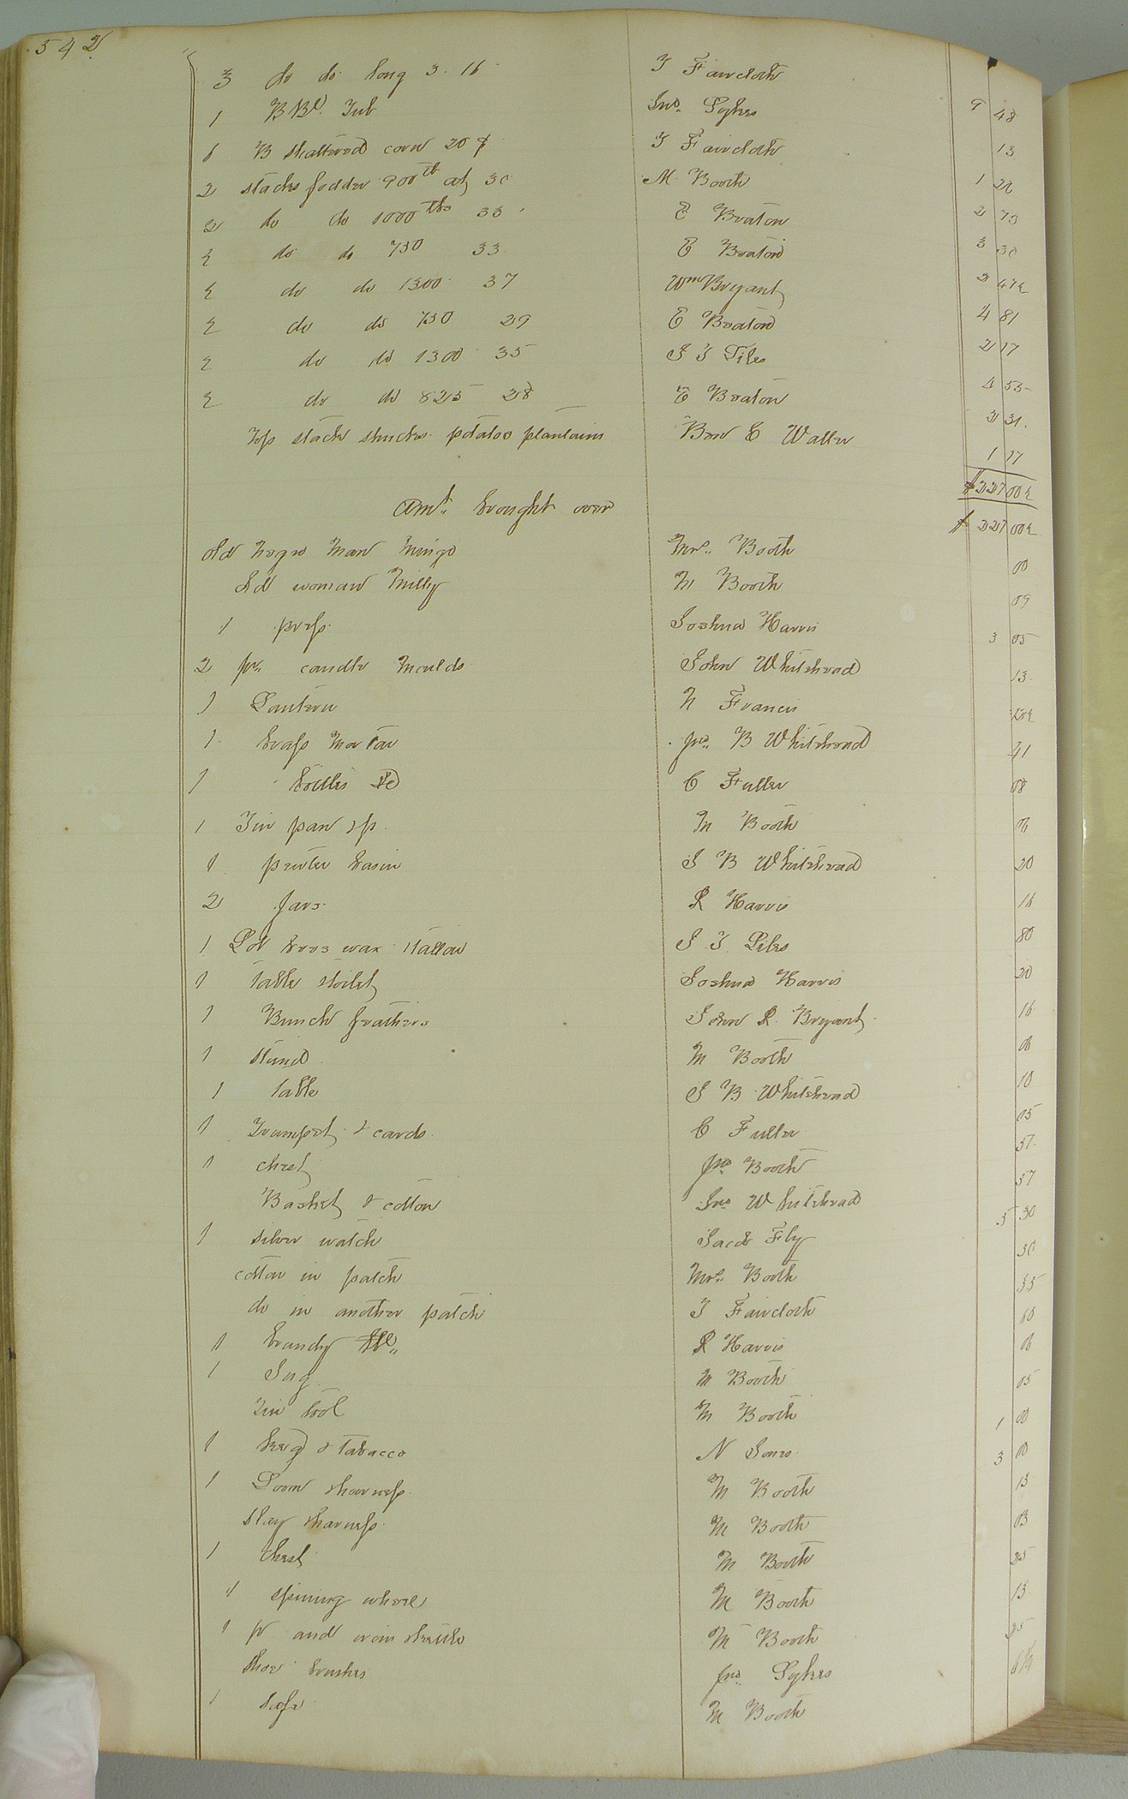 542
3 do do long 3.16 J Faircloth 9 48
1 BBl. Tub Jno. Sykes 13
1 B shattered corn 20 J Faircloth 1 20
2 stacks fodder 900 lb at 30 M Booth 2 73
2 do do 1000 lbs 33 E Beaton 3 30
2 do do 730 33 E Beaton 2 47½
2 do do 1300 37 Wm Bryant 4 81
2 do do 750 29 E Beaton 2 17
2 do do 1300 35 J J Piles 4 55
2 do do 825 28 E Beaton 2 31
Top stack shucks potatoe plantains Ben C Waller 1 17
$227 00½
Amt. brought over $227 00½
Old Negro Man Mingo Mrs. Booth 00
Old woman Milly M Booth 09
1 press Joshua Harris 3 05
2 pr. candle Moulds John Whitehead 13
1 Lantern N Francis
1 brass Mortar Jno. B Whitehead 41
1 bottles C Fuller 08
1 Tin pan M Booth 06
1 pewter basin J B Whitehead 20
2 Jars R Harris 16
1 Pot bees wax & tallow J J Piles 80
1 table & toilet Joshua Harris 20
1 Bunch feathers John R. Bryant 16
1 stand M Booth 06
1 table J B Whitehead 10
1 Trumpet & cards C Fuller 05
1 chest Jno Booth 57
Basket & cotton Jno Whitehead 57
1 silver watch Jacob Fly 5 30
cotton in patch Mrs. Booth 30
do in another patch J Faircloth 55
1 brandy R Harris 60
1 Jug M Booth 06
Tin M Booth 05
1 keg & Tabacco N Jones 1 00
1 Loom & harness M Booth 3 00
Slay & harness M Booth 13
1 chest M Booth 03
1 spining wheel M Booth 25
1 pr and irons M Booth 13
Shoe brushes Jno. Sykes 25
1 safe M Booth